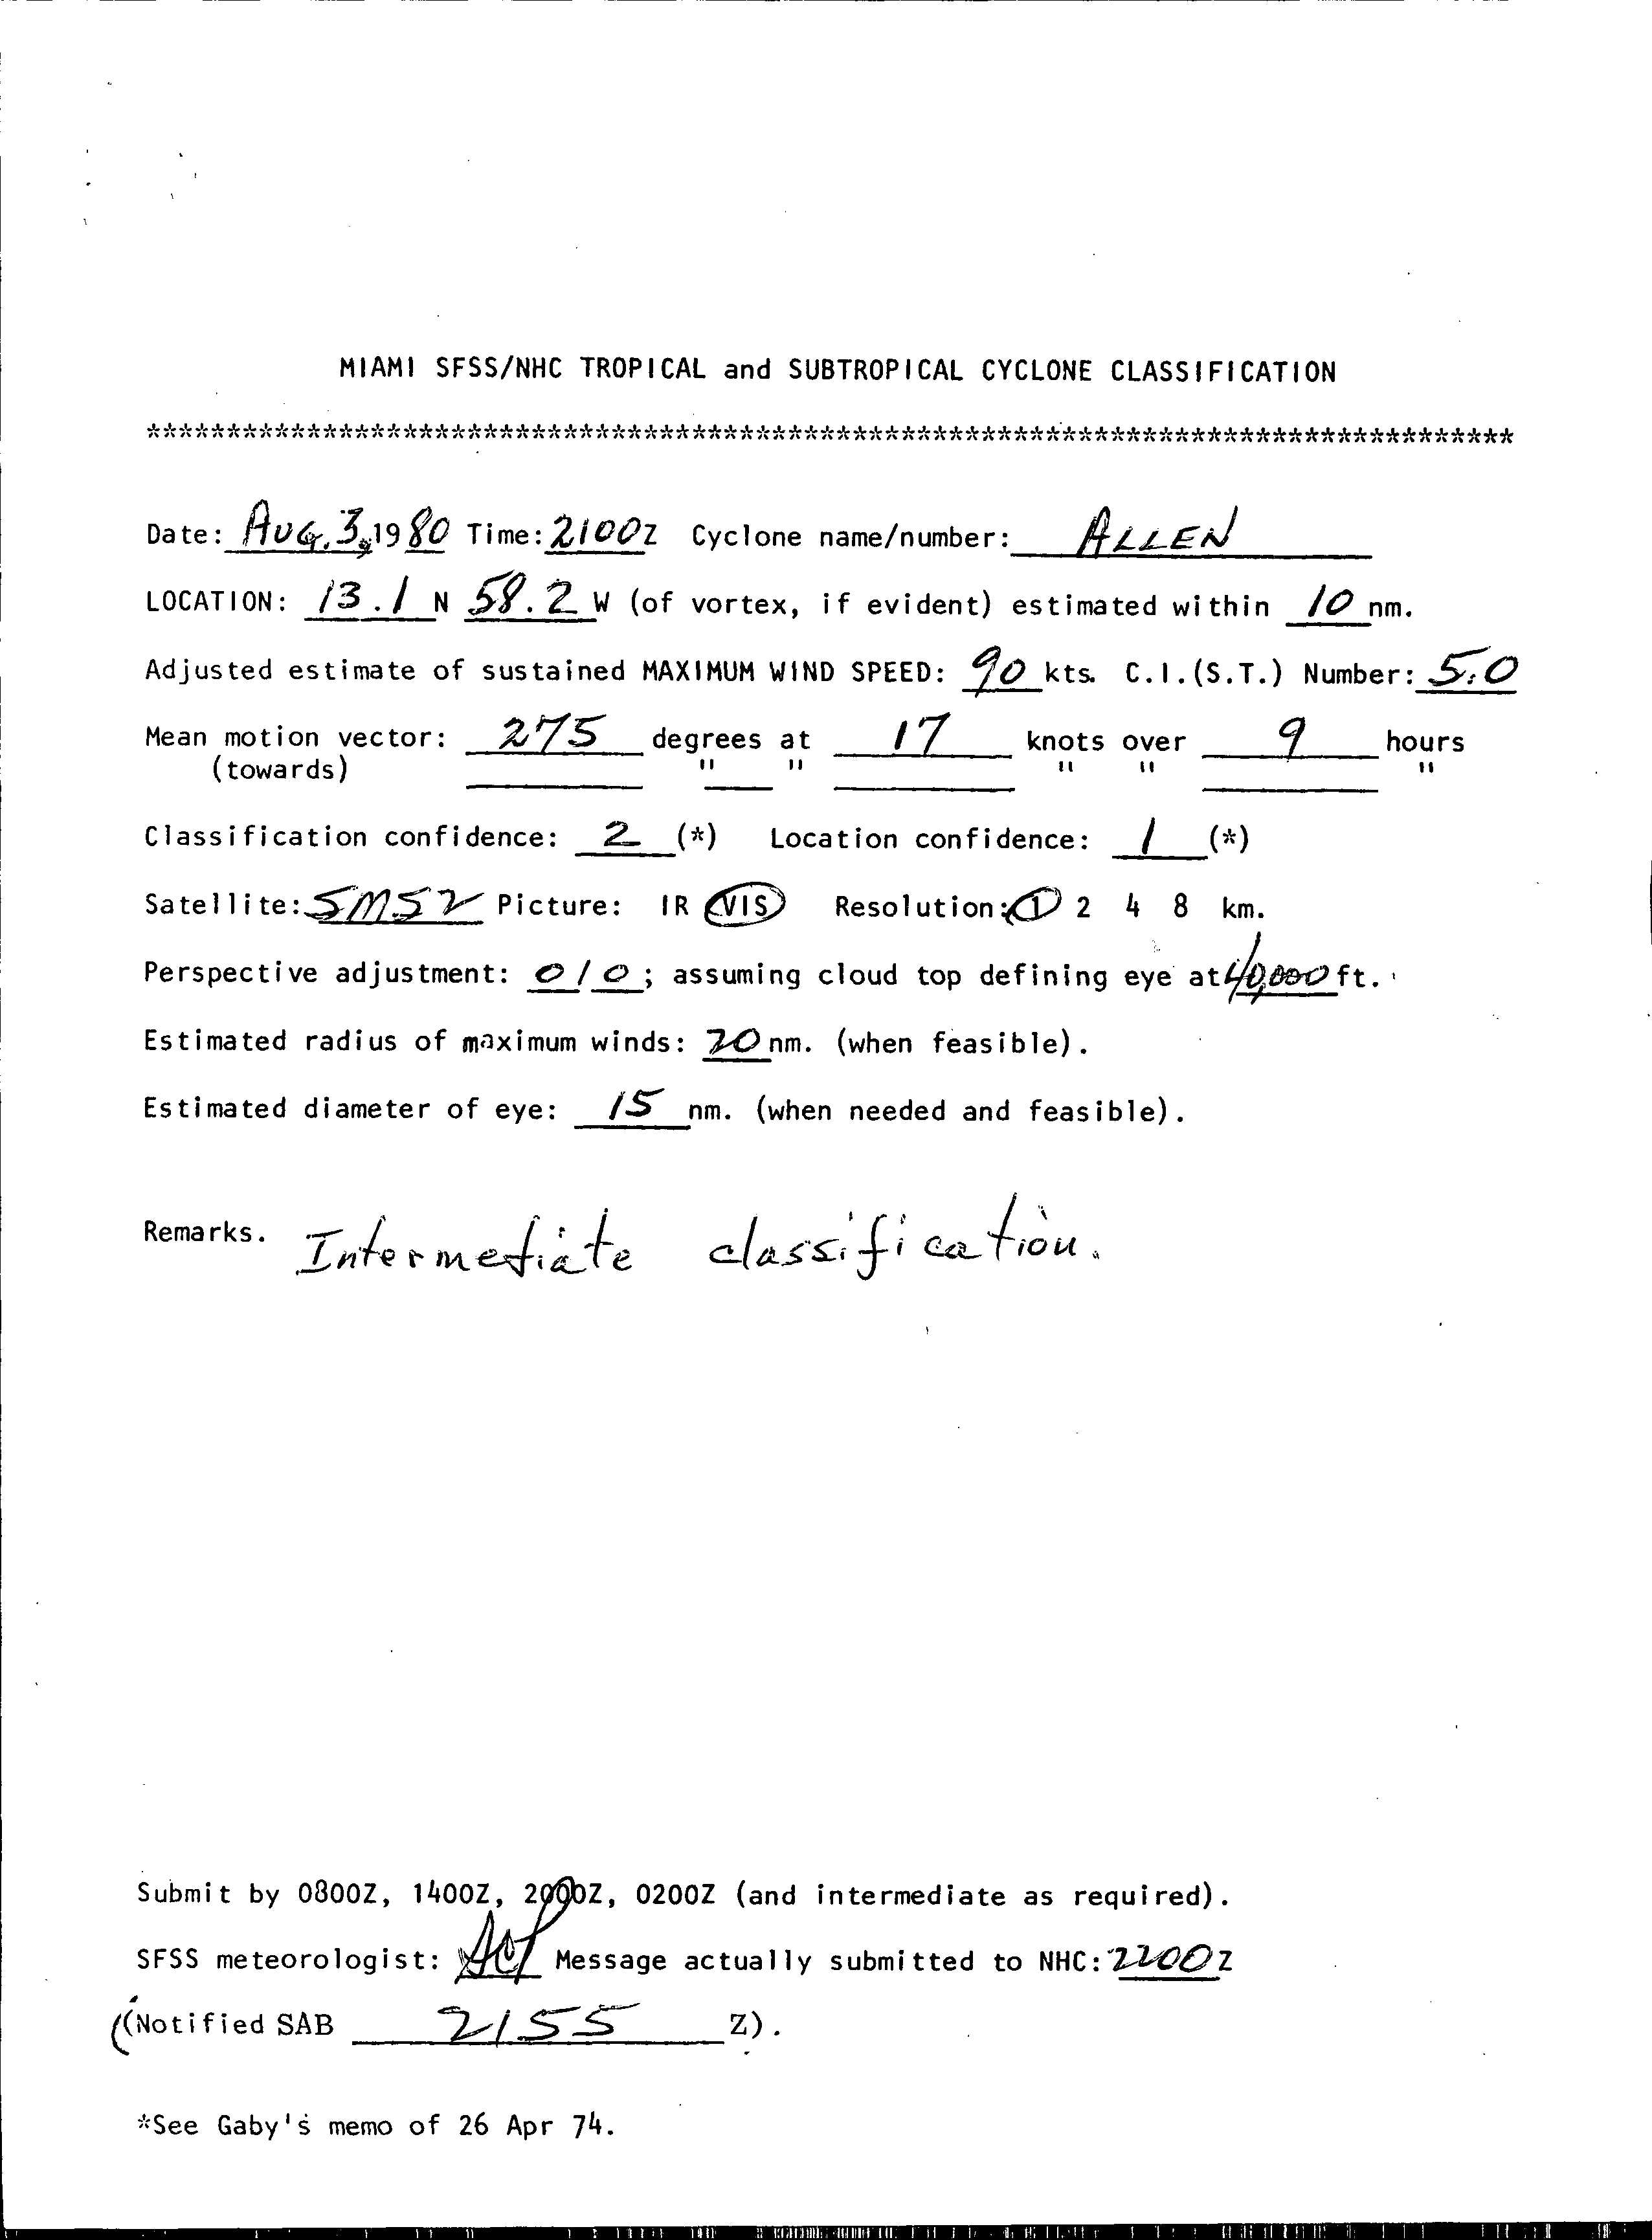 MIAMI SFSS/NHC TROPICAL and SUBTROPICAL CYCLONE CLASSIFICATION
*************************************************************************************
Date: AUG. 3, 1980 Time: 2100Z Cyclone name/number: ALLEN
LOCATION: 13.1 N 58.2 W (of vortex, if evident) estimated within 10 nm.
Adjusted estimate of sustained MAXIMUM WIND SPEED: 90 kts. C.I.(S.T.) Number: 5.0
Mean motion vector: 275 degrees at 17 knots over 9 hours
(towards) " " " " "
Classification confidence: 2 (*) Location confidence: 1 (*)
Satellite: SMS2 Picture: IR VIS Resolution: 1 2 4 8 km.
Perspective adjustment: 0/0; assuming cloud top defining eye at 40,000 ft.
Estimated radius of maximum winds: 20 nm. (when feasible).
Estimated diameter of eye: 15 nm. (when needed and feasible).
Remarks. Intermediate classification.
Submit by 0800Z, 1400Z, 2000Z, 0200Z (and intermediate as required).
SFSS meteorologist: Message actually submitted to NHC: 2200Z
((Notified SAB 2155 Z).
*See Gaby's memo of 26 Apr 74.